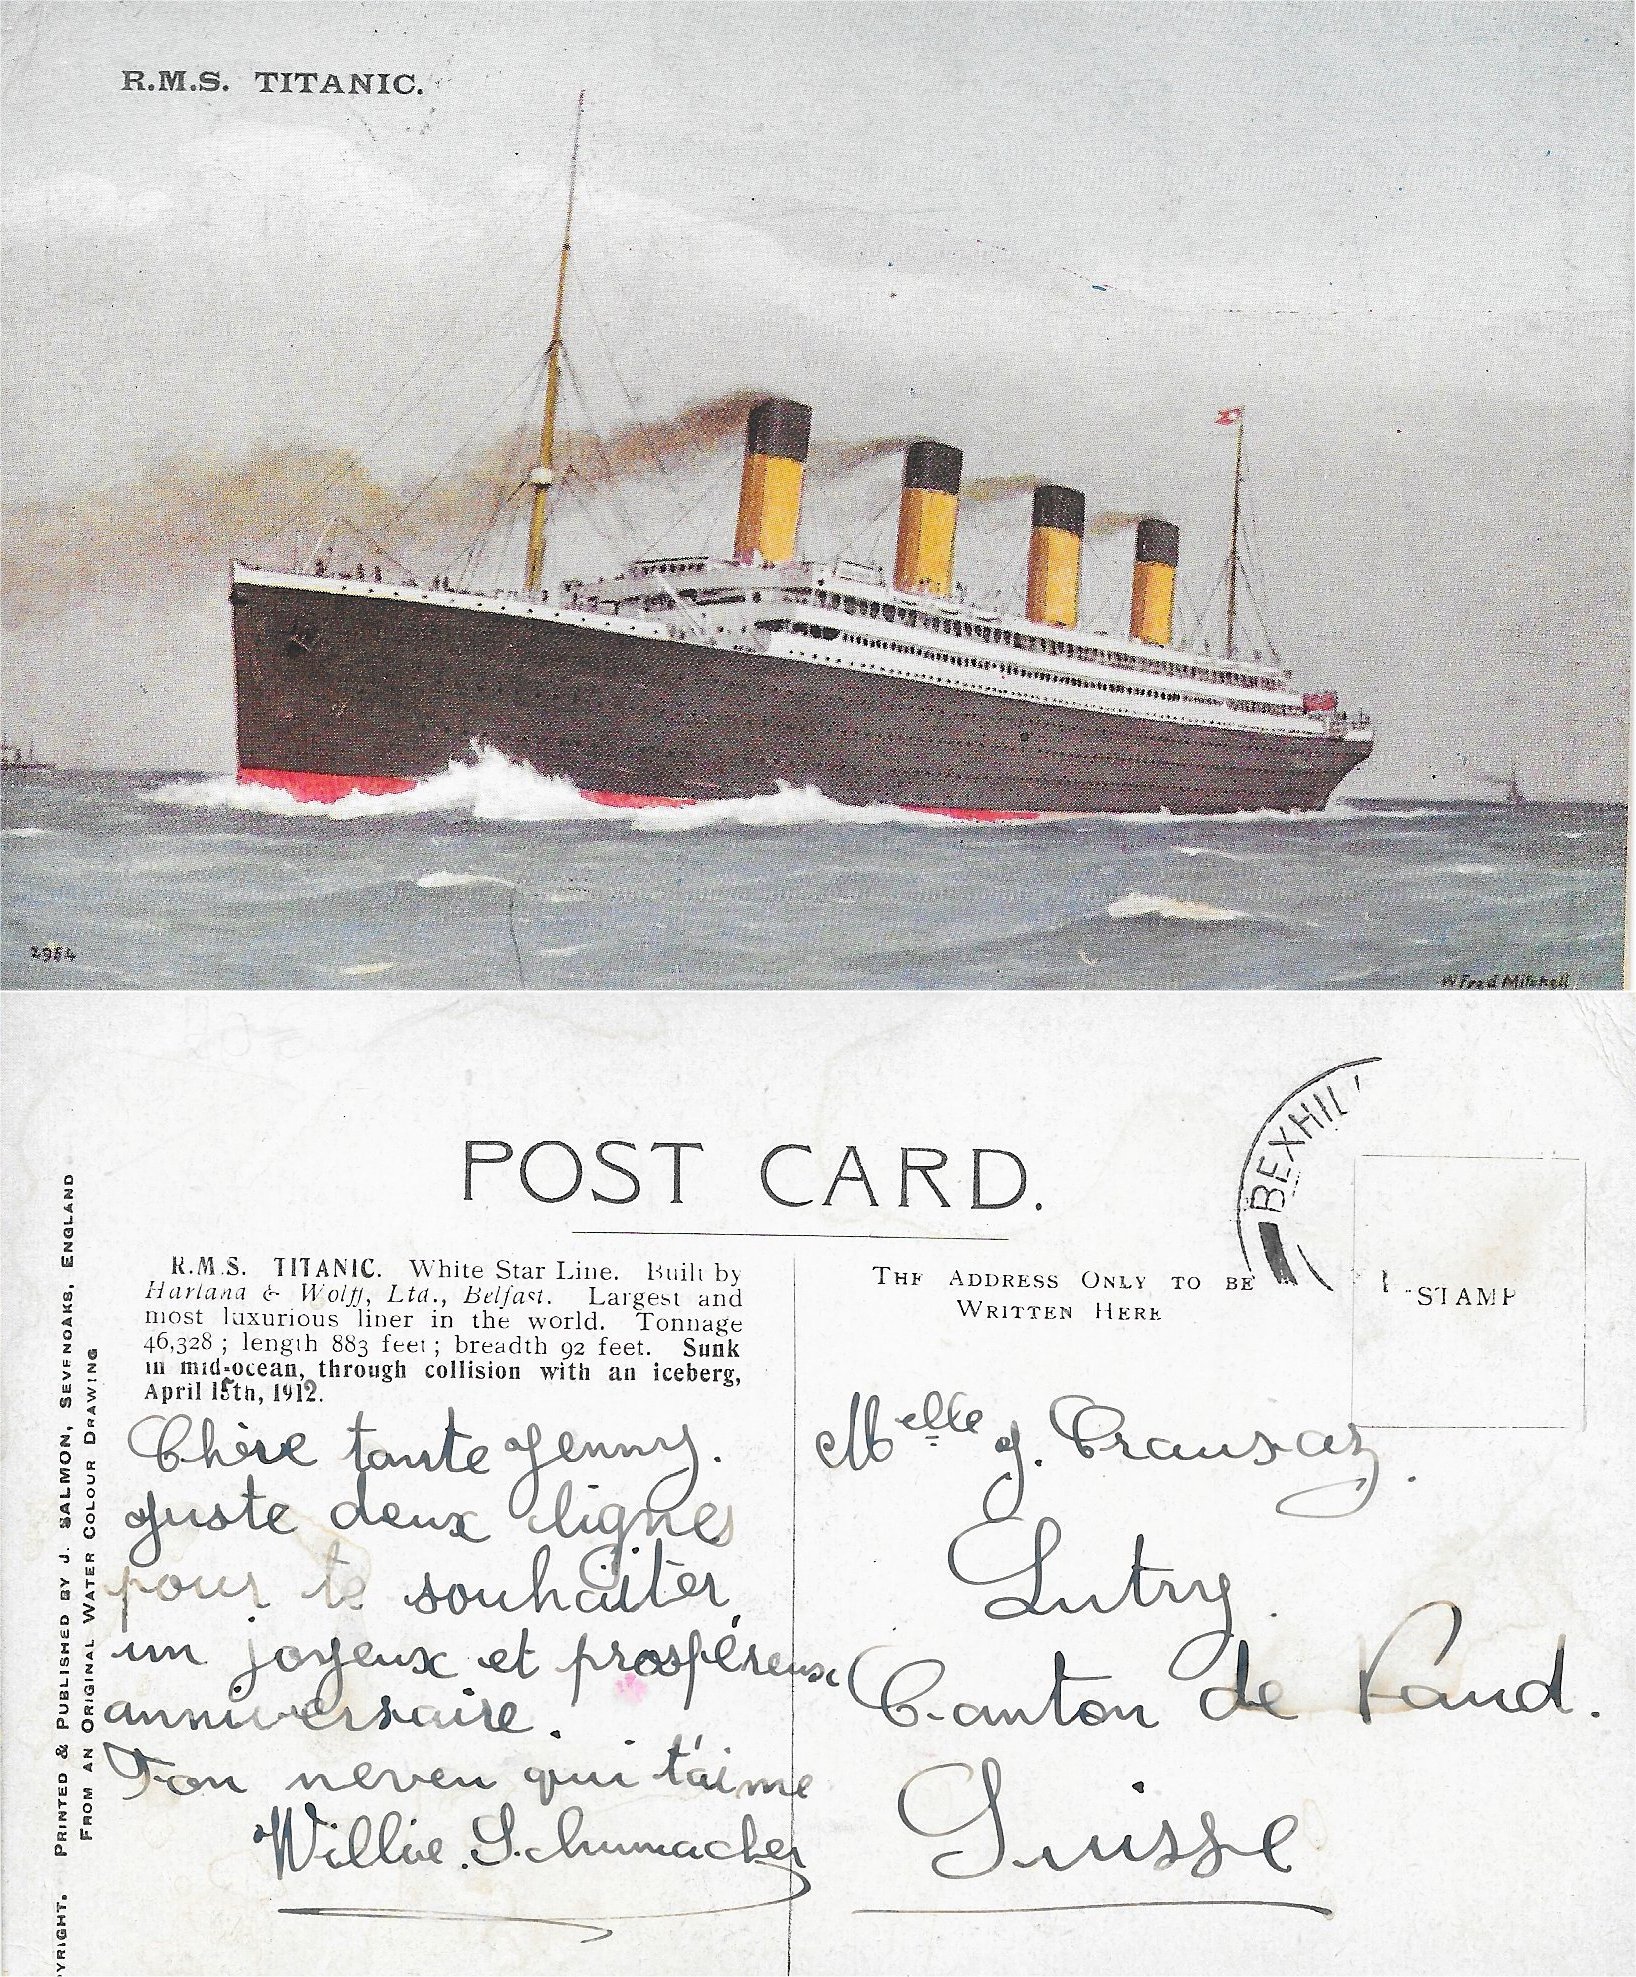 R.M.S. TITANIC.
2984
W Fred Mitchell
POST CARD.
R.M.S. TITANIC. White Star Line. Built by
Harland & Wolff, Ltd., Belfast. Largest and
most luxurious liner in the world. Tonnage
46,328 ; length 883 feet ; breadth 92 feet. Sunk
in mid-ocean, through collision with an iceberg,
April 15th, 1912.
PRINTED & PUBLISHED BY J. SALMON, SEVENOAKS, ENGLAND
FROM AN ORIGINAL WATER COLOUR DRAWING
Chère tante Jenny.
Juste deux lignes
pour te souhaiter
un joyeux et prospéreux
anniversaire.
Ton neveu qui t'aime
Willie. Schumacher
BEXHIL
THE ADDRESS ONLY TO BE
WRITTEN HERE
STAMP
Melle J. Crausaz.
Lutry.
Canton de Vaud.
Suisse